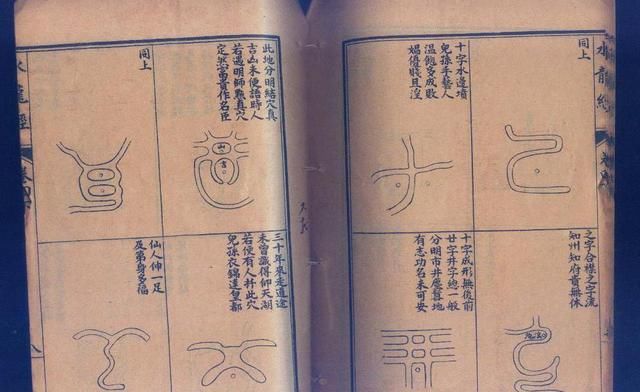 水龍經
同上
十字水邊墳
兒孫手藝人
溫飽多成敗
娼優賤且淫
之字合襟之字流
知州知府貴無休
十字成形無後前
廿字井字總一般
分明市井塵囂地
有志功名未可安
此地分明結穴真
吉凶未便語時人
若遇明師點真穴
定然富貴作名臣
吉
同上
三十年來走道途
未曾識得仰天湖
若使有人扦此穴
兒孫衣錦達皇都
仙人伸一足
及第身多福
水龍經
八